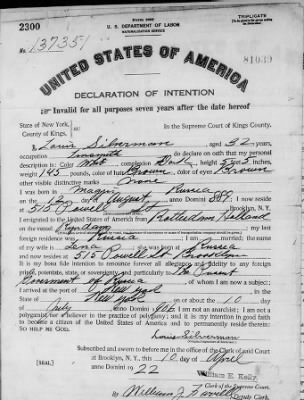 2300
U. S. DEPARTMENT OF LABOR
NATURALIZATION SERVICE
TRIPLICATE
No. 137351
81039
UNITED STATES OF AMERICA
DECLARATION OF INTENTION
Invalid for all purposes seven years after the date hereof
State of New York,
County of Kings,
In the Supreme Court of Kings County.
I, Louis Silverman, aged 32 years,
occupation Tinsmith, do declare on oath that my personal
description is: Color White, complexion Dark, height 5 feet 5 inches,
weight 145 pounds, color of hair Brown, color of eyes Brown
other visible distinctive marks None
I was born in Russia
on the day of August, anno Domini 1889; I now reside
at 515 Powell St Brooklyn, N. Y.
I emigrated to the United States of America from Rotterdam Holland
on the vessel Ryndam; my last
foreign residence was Russia; I am married; the name
of my wife is; she was born at Russia
and now resides at 515 Powell St Brooklyn
It is my bona fide intention to renounce forever all allegiance and fidelity to any foreign
prince, potentate, state, or sovereignty, and particularly to The Present
Government of Russia, of whom I am now a subject;
I arrived at the port of New York, in the
State of New York, on or about the 10 day
of July, anno Domini 1906; I am not an anarchist; I am not a
polygamist nor a believer in the practice of polygamy; and it is my intention in good faith
to become a citizen of the United States of America and to permanently reside therein:
SO HELP ME GOD.
Louis Silverman
Subscribed and sworn to before me in the office of the Clerk of said Court
at Brooklyn, N. Y., this 10 day of April
[SEAL] anno Domini 1922
William E. Kelly
Clerk of the Supreme Court.
By William J. Clerk.